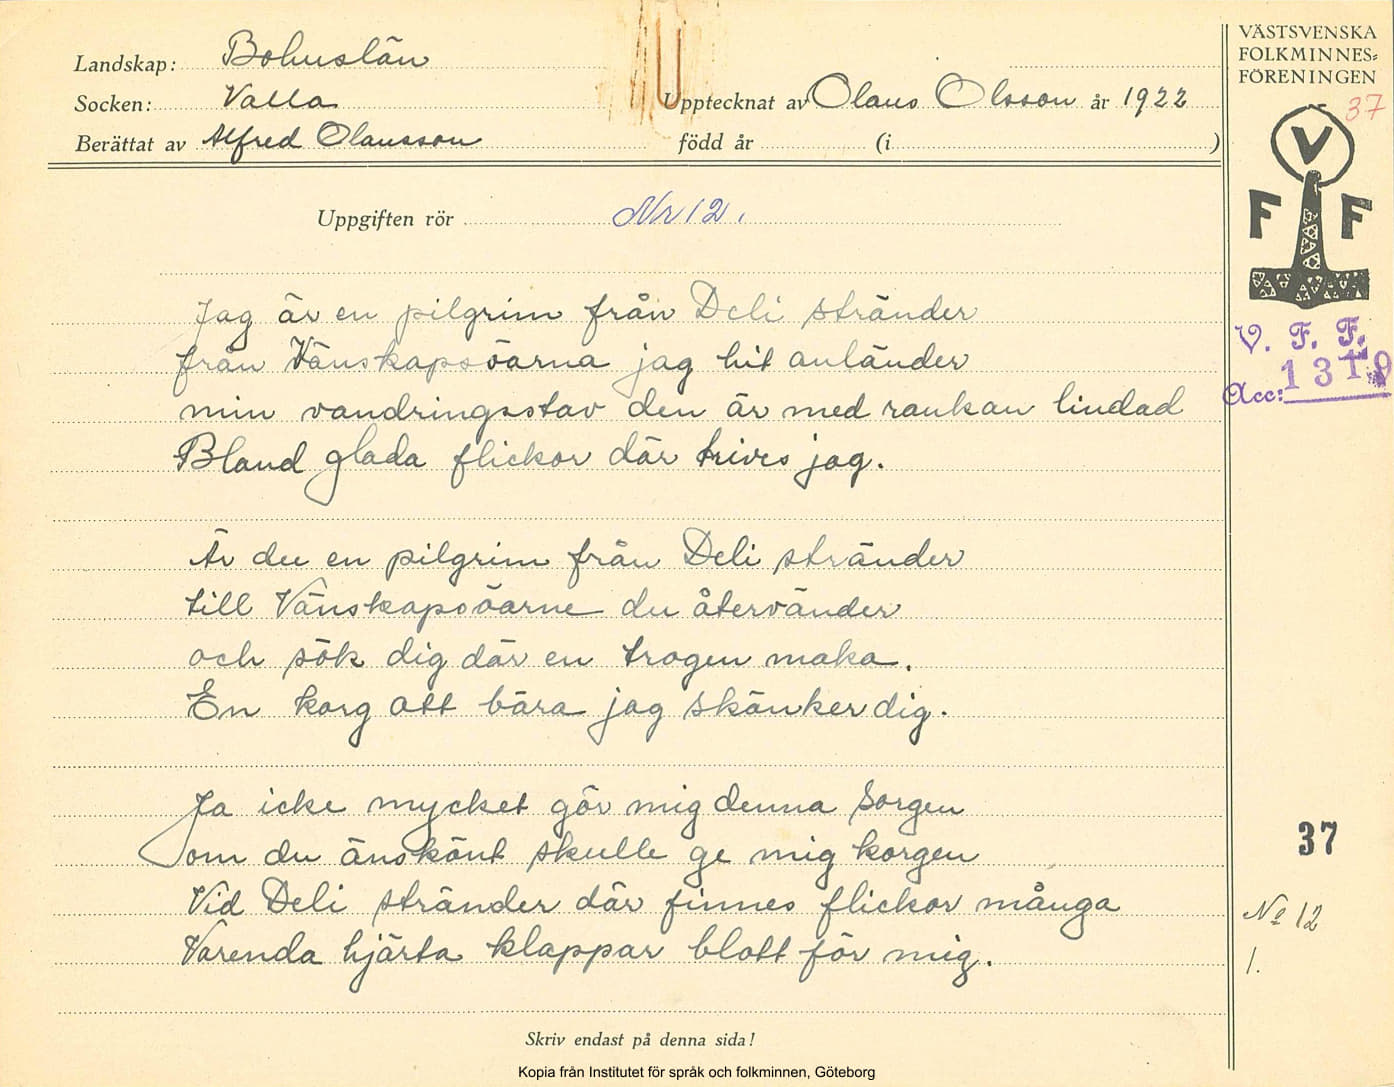 Landskap: Bohuslän
Socken: Valla
Upptecknat av Olaus Olsson år 1922
Berättat av Alfred Olausson
född år (i )
Uppgiften rör Nr 12.
Jag är en pilgrim från Deli stränder
från Vänskapsöarna jag hit anländer
min vandringsstav den är med rankan lindad
Bland glada flickor där trives jag.
Är du en pilgrim från Deli stränder
till Vänskapsöarne du återvänder
och sök dig där en trogen maka.
En korg att bära jag skänker dig.
Ja icke mycket gör mig denna Sorgen
om du änskönt skulle ge mig korgen
Vid Deli stränder där finnes flickor många
Varenda hjärta klappar blott för mig.
Skriv endast på denna sida!
Kopia från Institutet för språk och folkminnen, Göteborg
VÄSTSVENSKA
FOLKMINNES=
FÖRENINGEN
37
V
F F
V. F. F.
Acc: 1319
37
No 12
1.